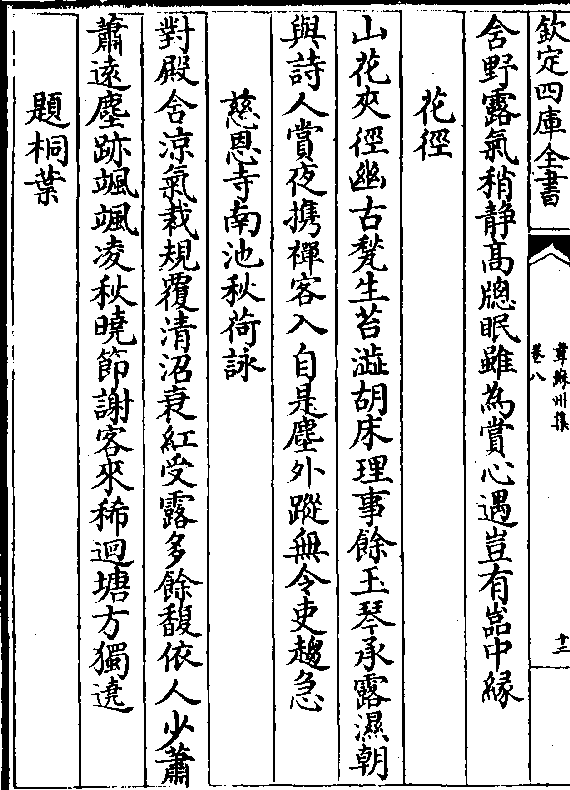 欽定四庫全書
韋蘇州集
卷八
十三
舍野露氣稍静高牕眠雖為賞心遇豈有嵓中縁
花徑
山花夾徑幽古甃生苔澁胡床理事餘玉琴承露濕朝
與詩人賞夜携禪客入自是塵外蹤無令吏趨急
慈恩寺南池秋荷詠
對殿含涼氣裁規覆清沼衰紅受露多餘馥依人少蕭
蕭遠塵跡颯颯凌秋曉節謝客來稀迴塘方獨遶
題桐葉